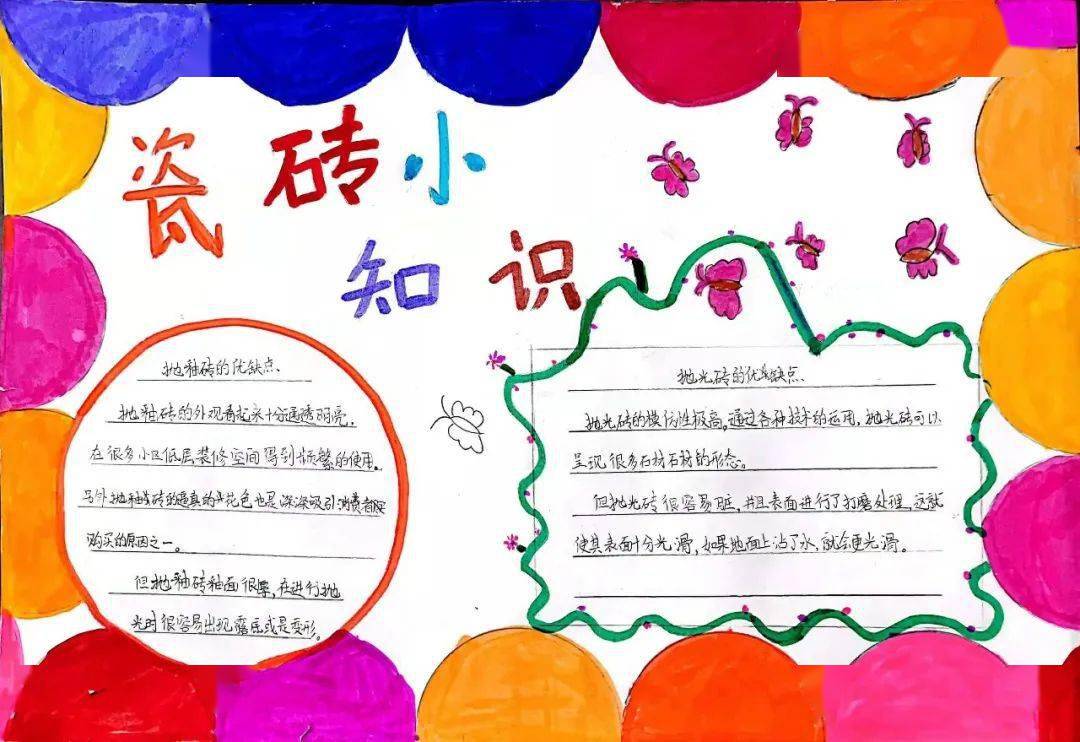 瓷砖小
知识
抛釉砖的优缺点、
抛釉砖的外观看起来十分通透明亮,
在很多小区低层装修空间得到频繁的使用。
另外抛釉砖的逼真的花色也是深深吸引消费者
购买的原因之一。
但抛釉砖釉面很厚,在进行抛
光时很容易出现磨底或是变形。
抛光砖的优缺点.
抛光砖的模仿性极高。通过各种技术的运用,抛光砖可以
呈现很多石材的形态。
但抛光砖很容易脏,并且表面进行了打磨处理,这就
使其表面十分光滑,如果地面上沾了水,就会更光滑。